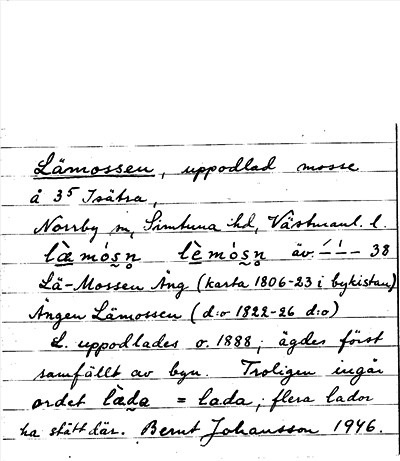 Lämossen, uppodlad mosse
å 3⁵ Isätra,
Norrby sn, Simtuna hd, Västmanl. l.
læ̀ mósn̥ lè mósn̥ äv. 38
Lä-Mossen Äng (karta 1806-23 i bykistan)
Ängen Lämossen (d:o 1822-26 d:o)
L. uppodlades o. 1888; ägdes först
samfällt av byn. Troligen ingår
ordet læ̀da = lada; flera lador
ha stått där. Bernt Johansson 1946.